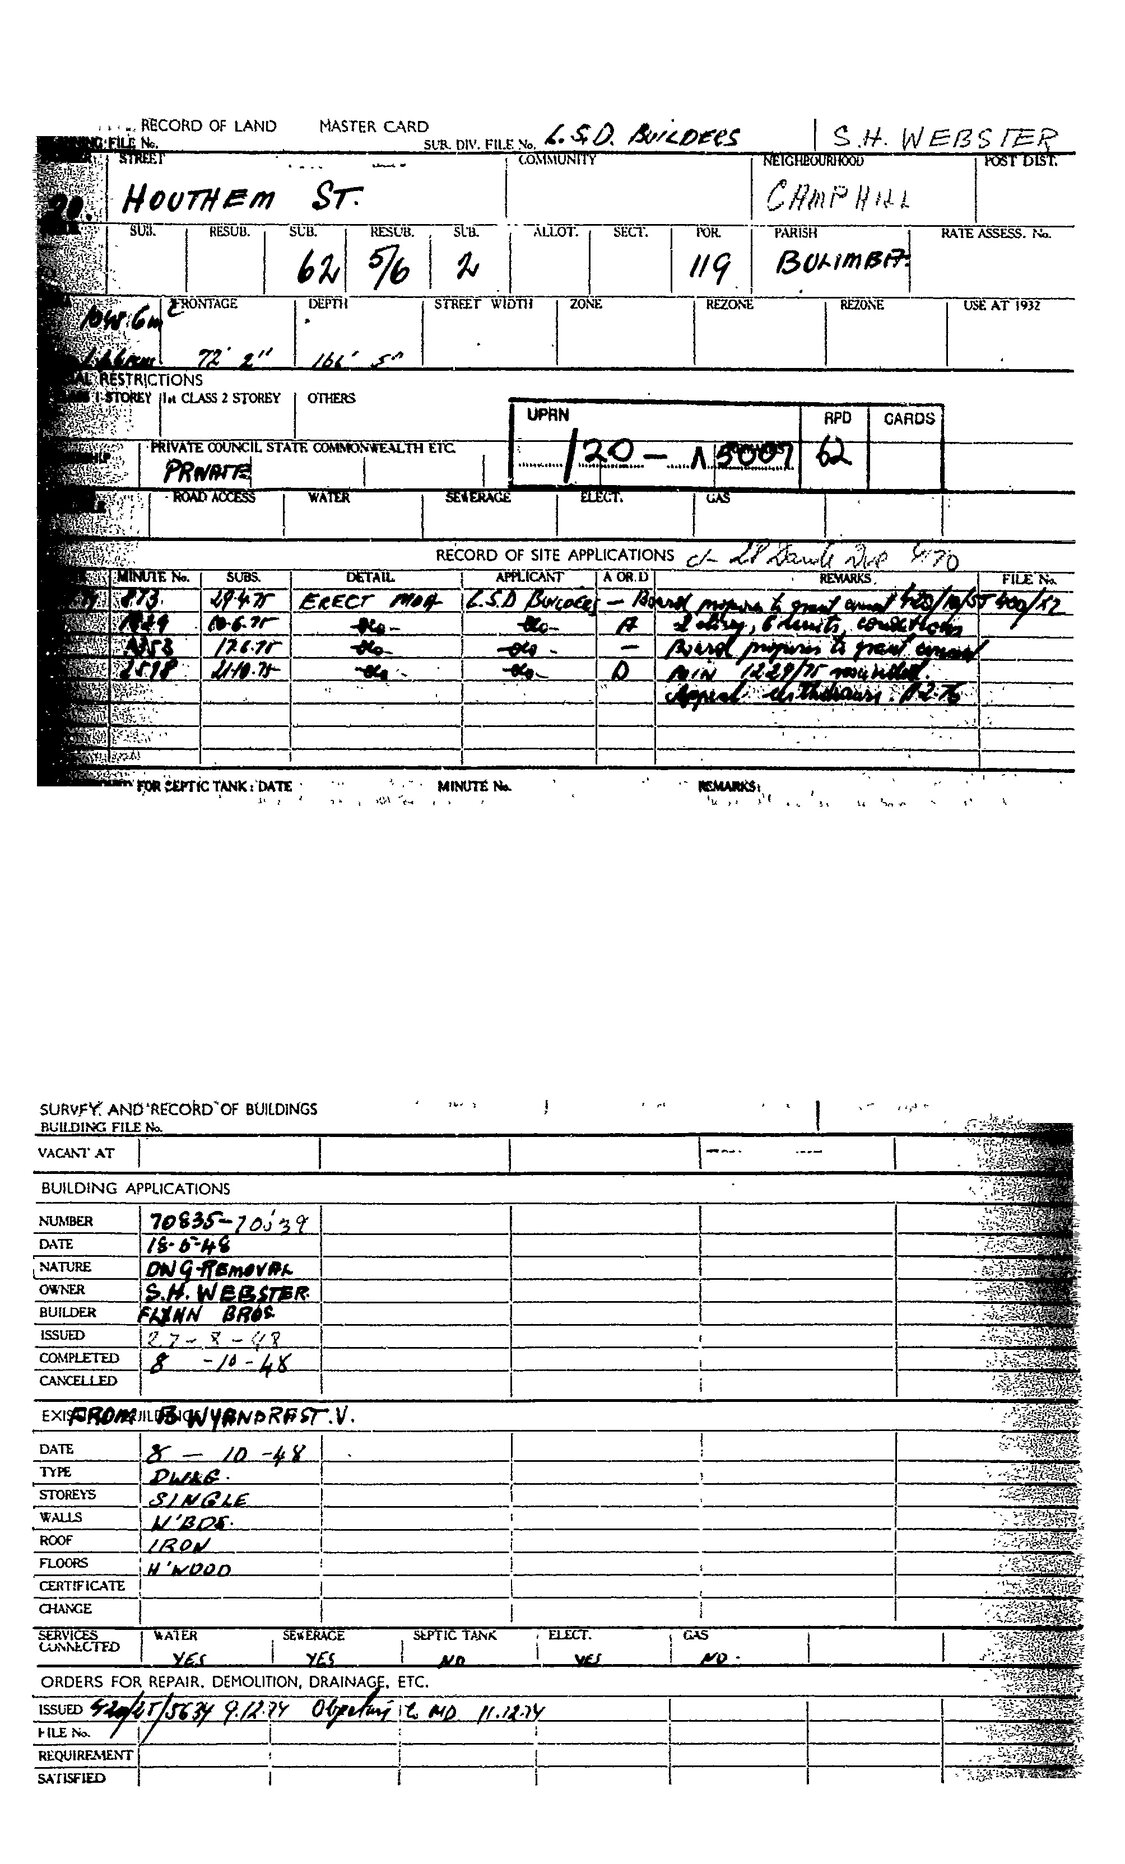 RECORD OF LAND MASTER CARD
FILE No. SUB. DIV. FILE No. L.S.D. BUILDERS S.H. WEBSTER
STREET COMMUNITY NEIGHBOURHOOD POST DIST.
20. HOUTHEM ST. CAMPHILL
SUB. RESUB. SUB. RESUB. SUB. ALLOT. SECT. POR. PARISH RATE ASSESS. No.
62 5/6 2 119 BULIMBA
FRONTAGE DEPTH STREET WIDTH ZONE REZONE REZONE USE AT 1932
72' 2" 166' 5"
RESTRICTIONS
1 STOREY 1st CLASS 2 STOREY OTHERS
UPRN RPD CARDS
PRIVATE COUNCIL STATE COMMONWEALTH ETC.
PRIVATE
/20 - 5007 62
ROAD ACCESS WATER SEWERAGE ELECT. GAS
RECORD OF SITE APPLICATIONS c/-
MINUTE No. SUBS. DETAIL APPLICANT A OR D REMARKS FILE No.
873. 29.4.75 ERECT MDH L.S.D BUILDERS - Board proposes to grant consent 420/10/55 400/52
10.6.75 -do- -do- A 2 storey, 6 units, conditions
17.6.75 -do- -do- - Board proposes to grant consent
2598 21.10.75 -do- -do- D MIN 1229/75 rescinded.
Appeal withdrawn.
FOR SEPTIC TANK: DATE MINUTE No. REMARKS:
SURVEY AND RECORD OF BUILDINGS
BUILDING FILE No.
VACANT AT
BUILDING APPLICATIONS
NUMBER 70835-
DATE 18-5-48
NATURE DWG-REMOVAL
OWNER S.H. WEBSTER
BUILDER FLYNN BROS
ISSUED 27-8-48
COMPLETED 8 -10-48
CANCELLED
FROM
DATE 8 - 10 -48
TYPE DWLG.
STOREYS SINGLE
WALLS W'BDS.
ROOF IRON
FLOORS H'WOOD
CERTIFICATE
CHANGE
SERVICES CONNECTED WATER SEWERAGE SEPTIC TANK ELECT. GAS
YES YES NO YES NO.
ORDERS FOR REPAIR, DEMOLITION, DRAINAGE, ETC.
ISSUED 420/25/5634 9.12.74 Objection to MD 11.12.74
FILE No.
REQUIREMENT
SATISFIED